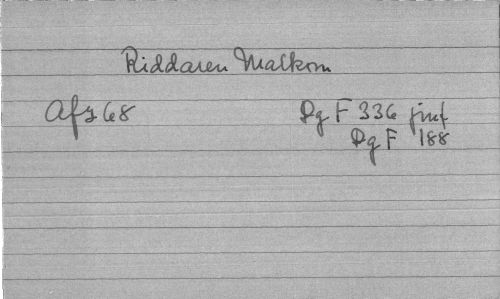 Riddaren Malkom
Afz 68 DgF 336 jmf
DgF 188